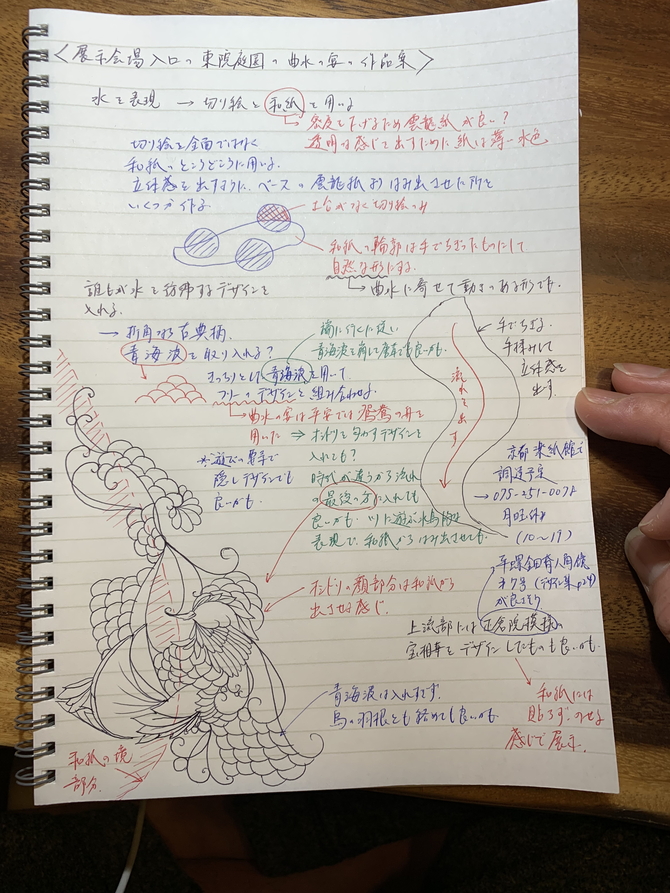 ＜展示会場入口の東院庭園の曲水の宴の作品案＞
水を表現 → 切り絵と和紙を用いる
→ 密度を下げるため雲龍紙が良い？
透明な感じを出すために紙は薄い水色
切り絵を全面ではなく
和紙のところどころに用いる。
立体感を出すように、ベースの雲龍紙よりはみ出させた所を
いくつか作る
土台がなく切り絵のみ
和紙の輪郭は手でちぎったものにして
自然な形にする。
→ 曲水に寄せて動きのある形でも。
誰もが水を彷彿するデザインを
入れる。
→ 折角なる古典柄、
青海波を取り入れる？
端に行くに従い
青海波を崩して唐草でも良いかも。
きっちりとした青海波を用いて
フリーのデザインと組み合わせる。
← 手でちぎる。
手揉みして
立体感を
出す。
流れを出す
→ 曲水の宴は平安では鴛鴦の舟を
用いた ⇒ オシドリを匂わすデザインを
入れても？
※遊びの要素で
隠しデザインでも
良いかも。
時代が違うから流れ
の最後の方に入れても
良いかも。
表現で、和紙からはみ出させても。
京都楽紙館で
調達予定
→ 075-251-0078
月曜休み
(10〜19)
平螺鈿背八角鏡
が良さそう
オシドリの顔部分は和紙から
出させる感じ。
上流部には正倉院模様の
宝相華をデザインしたものも良いかも。
青海波は入れすぎず、
鳥の羽根とも絡めても良いかも。
和紙には
貼らず、のせる
感じで展示。
和紙の境
部分。